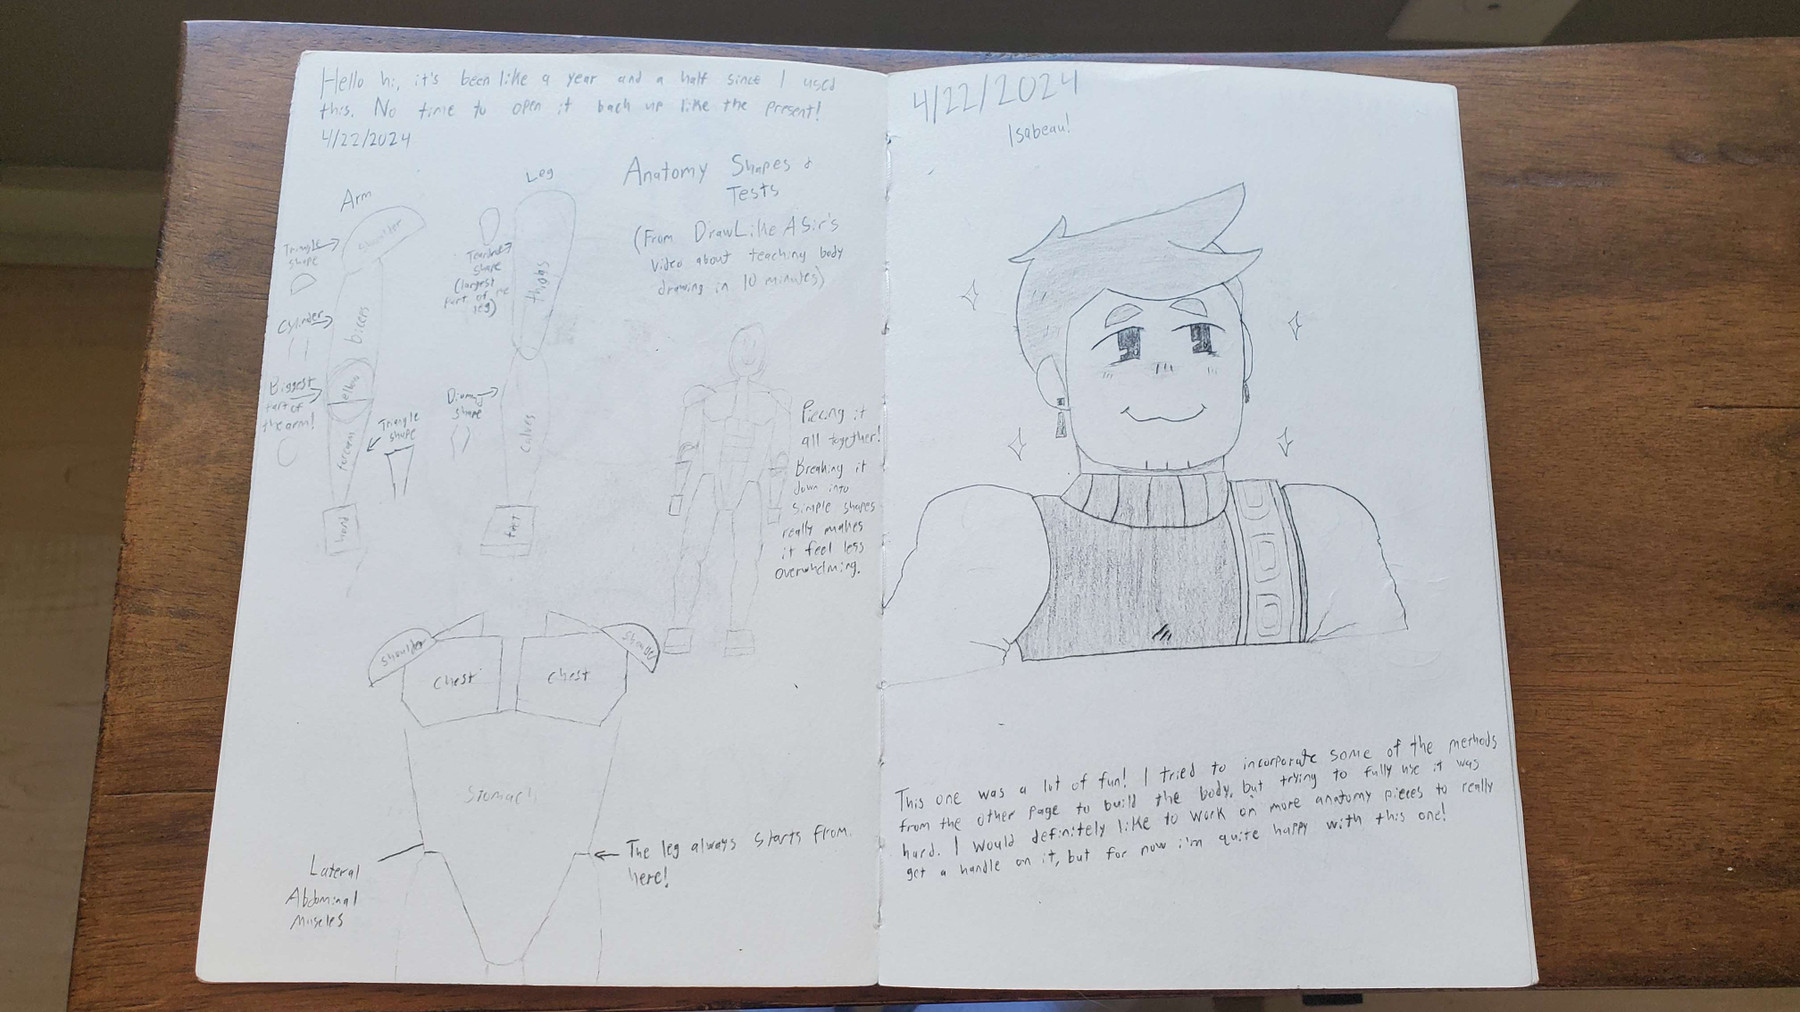 Hello hi, it's been like a year and a half since I used
this. No time to open it back up like the present!
4/22/2024
Anatomy Shapes &
Tests
(From DrawLikeASir's
video about teaching body
drawing in 10 minutes)
Arm
Triangle
shape
Shoulder
Cylinder
biceps
Biggest
part of
the arm!
elbow
Triangle
shape
forearm
hand
Leg
Teardrop
shape
(largest
part of the
leg)
thighs
Diamond
shape
calves
foot
Piecing it
all together!
Breaking it
down into
simple shapes
really makes
it feel less
overwhelming.
Shoulder
Chest
Chest
Shoulder
Stomach
Lateral
Abdominal
Muscles
The leg always starts from
here!
4/22/2024
Isabeau!
This one was a lot of fun! I tried to incorporate some of the methods
from the other page to build the body, but trying to fully use it was
hard. I would definitely like to work on more anatomy pieces to really
get a handle on it, but for now i'm quite happy with this one!